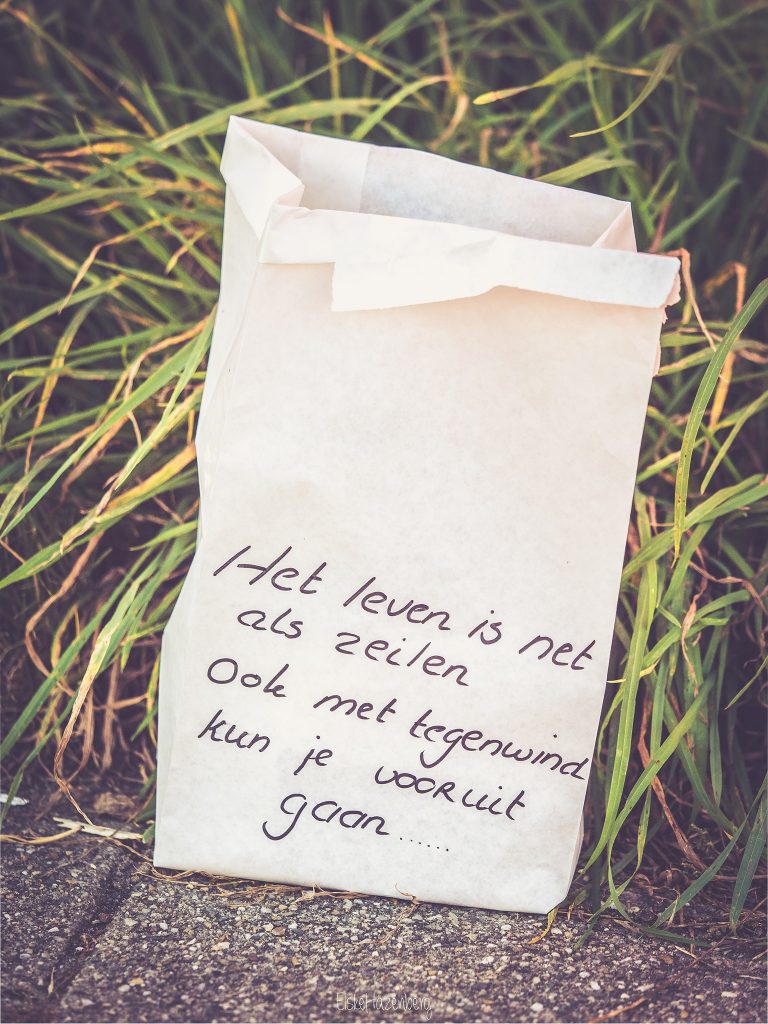 Het leven is net
als zeilen
Ook met tegenwind
kun je vooruit
gaan......
ElskeHazenberg